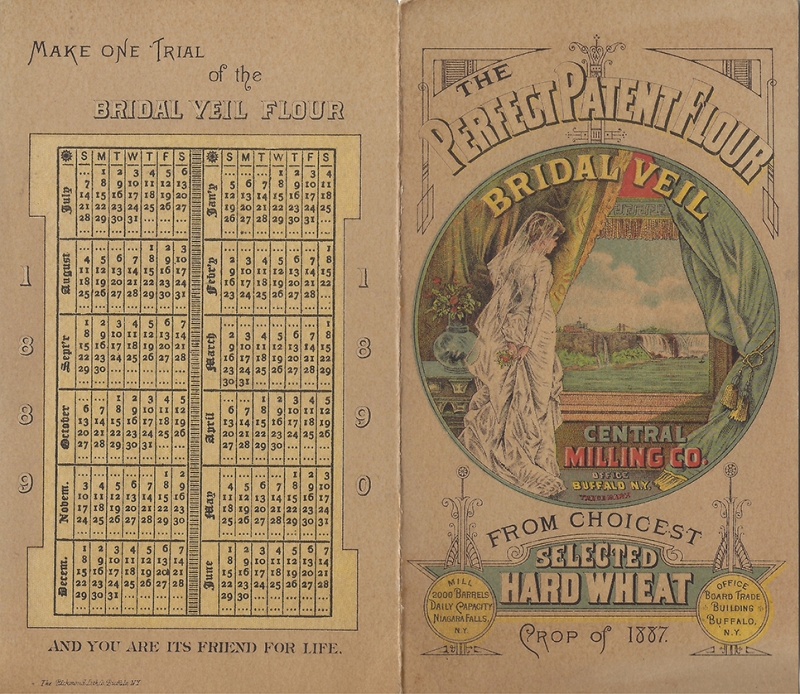 MAKE ONE TRIAL
of the
BRIDAL VEIL FLOUR
1889
S M T W T F S
July
1 2 3 4 5 6
7 8 9 10 11 12 13
14 15 16 17 18 19 20
21 22 23 24 25 26 27
28 29 30 31
August
1 2 3
4 5 6 7 8 9 10
11 12 13 14 15 16 17
18 19 20 21 22 23 24
25 26 27 28 29 30 31
Sept'r
1 2 3 4 5 6 7
8 9 10 11 12 13 14
15 16 17 18 19 20 21
22 23 24 25 26 27 28
29 30
October
1 2 3 4 5
6 7 8 9 10 11 12
13 14 15 16 17 18 19
20 21 22 23 24 25 26
27 28 29 30 31
Novem.
1 2
3 4 5 6 7 8 9
10 11 12 13 14 15 16
17 18 19 20 21 22 23
24 25 26 27 28 29 30
Decem.
1 2 3 4 5 6 7
8 9 10 11 12 13 14
15 16 17 18 19 20 21
22 23 24 25 26 27 28
29 30 31
1890
S M T W T F S
Jan'y
1 2 3 4
5 6 7 8 9 10 11
12 13 14 15 16 17 18
19 20 21 22 23 24 25
26 27 28 29 30 31
Febr'y
1
2 3 4 5 6 7 8
9 10 11 12 13 14 15
16 17 18 19 20 21 22
23 24 25 26 27 28
March
1
2 3 4 5 6 7 8
9 10 11 12 13 14 15
16 17 18 19 20 21 22
23 24 25 26 27 28 29
30 31
April
1 2 3 4 5
6 7 8 9 10 11 12
13 14 15 16 17 18 19
20 21 22 23 24 25 26
27 28 29 30
May
1 2 3
4 5 6 7 8 9 10
11 12 13 14 15 16 17
18 19 20 21 22 23 24
25 26 27 28 29 30 31
June
1 2 3 4 5 6 7
8 9 10 11 12 13 14
15 16 17 18 19 20 21
22 23 24 25 26 27 28
29 30
AND YOU ARE ITS FRIEND FOR LIFE.
The Richmond Lith. Co. Buffalo N.Y.
THE
PERFECT PATENT FLOUR
BRIDAL VEIL
CENTRAL
MILLING CO.
OFFICE
BUFFALO N.Y.
TRADE MARK
FROM CHOICEST
SELECTED
HARD WHEAT
CROP OF 1887.
MILL
2000 BARRELS
DAILY CAPACITY
NIAGARA FALLS,
N.Y.
OFFICE
BOARD TRADE
BUILDING
BUFFALO,
N.Y.